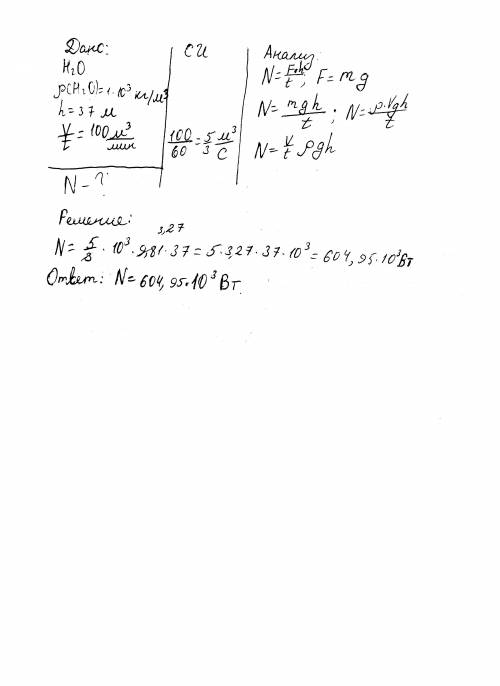 Дано:
H₂O
ρ(H₂O)=1·10³ кг/м³
h=37 м
V/t = 100 м³/мин
N-?
СИ
100/60 = 5/3 м³/с
Анализ:
N=F·h/t; F=mg
N=mgh/t; N=ρ·Vgh/t
N=V/t ρgh
Решение:
3,27
N=5/3·10³·9,81·37=5·3,27·37·10³=604,95·10³Вт
Ответ: N=604,95·10³Вт.